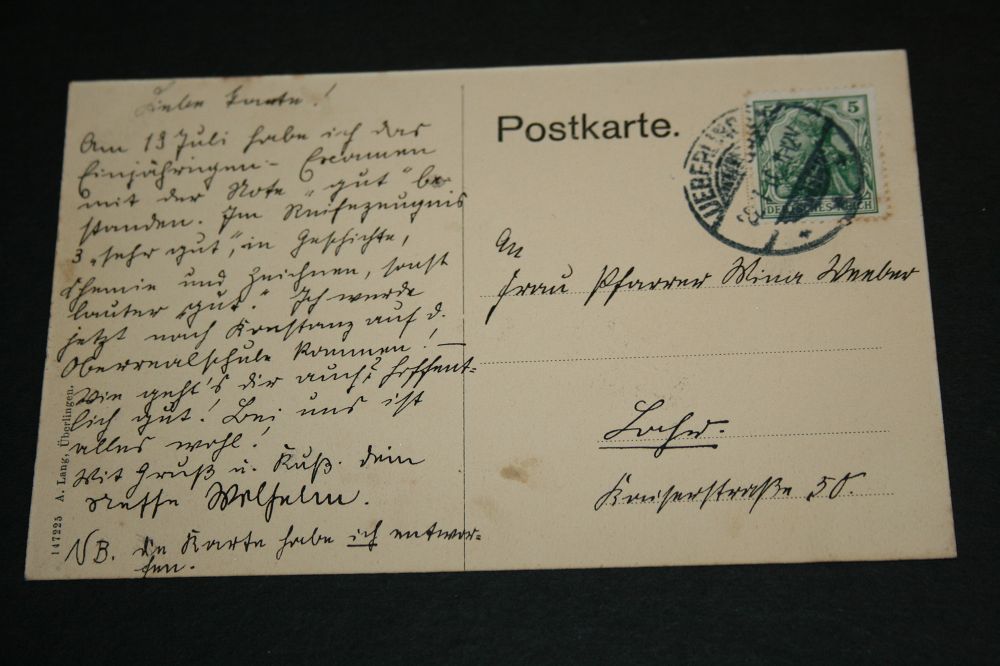 Liebe Tante!
Am 19 Juli habe ich das
Einjährigen-Examen
mit der Note "gut" be-
standen. Im Reifezeugnis
3 "sehr gut", in Geschichte,
Chemie und Zeichnen, sonst
lauter "gut." Ich werde
jetzt nach Konstanz auf d.
Oberrealschule kommen! —
Wie geht's dir auch? Hoffent-
lich gut! Bei uns ist
alles wohl!
Mit Gruß u. Kuß. dein
Neffe Wilhelm.
NB. die Karte habe ich entwor-
fen.
147225 A. Lang, Überlingen.
Postkarte.
5
DEUTSCHES REICH
UEBERLINGEN
An
Frau Pfarrer Mina Weeber
Kaiserstraße 50.